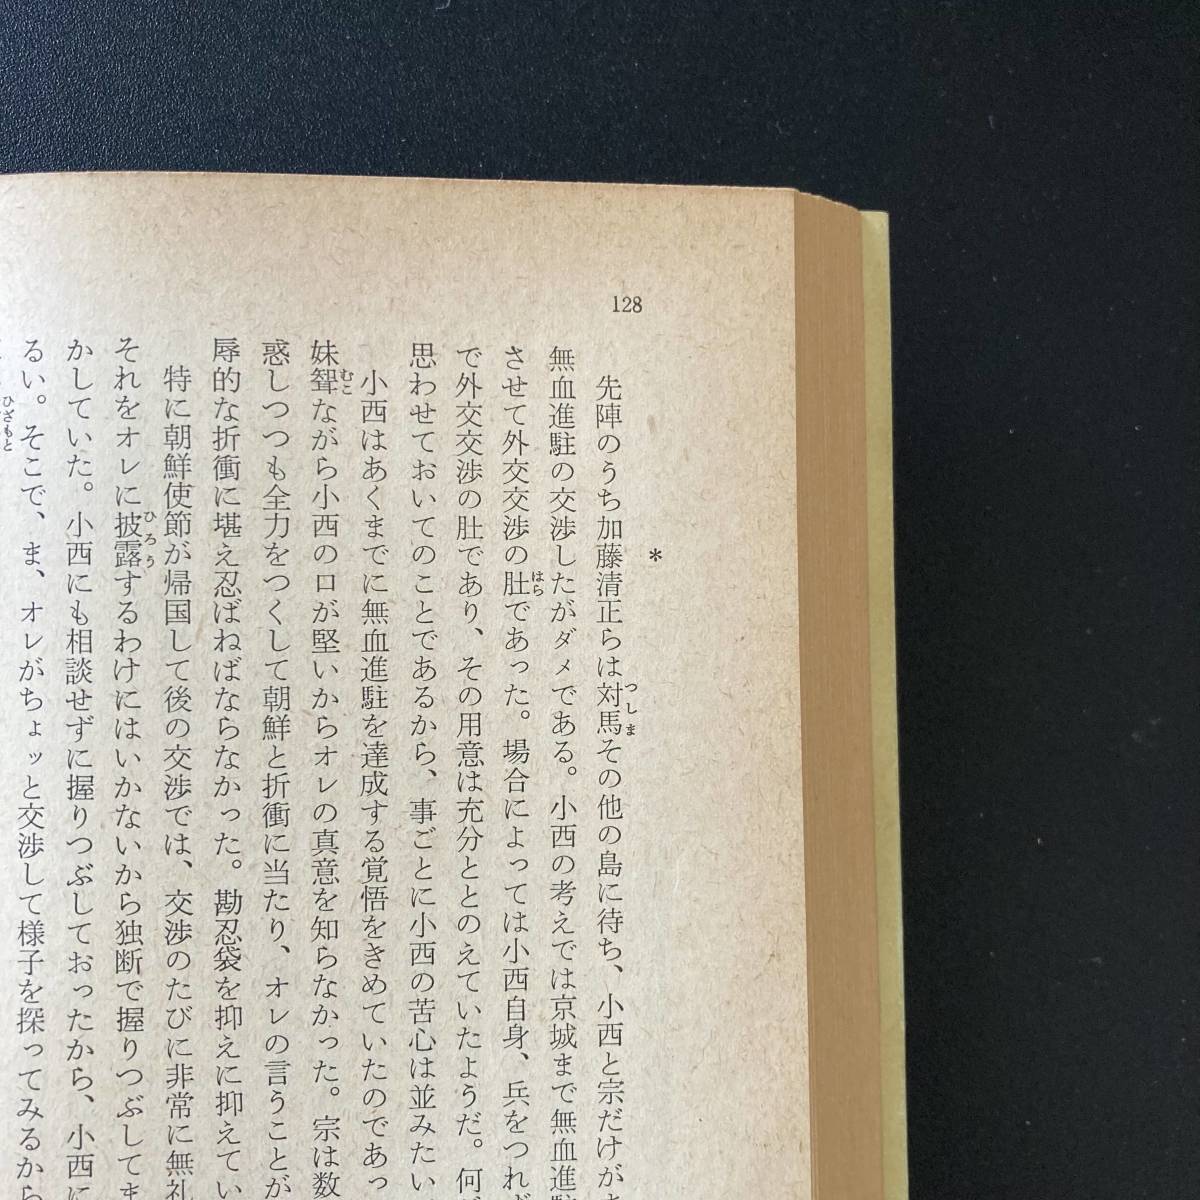 128
*
先陣のうち加藤清正らは対馬その他の島に待ち、小西と宗だけが
無血進駐の交渉したがダメである。小西の考えでは京城まで無血進駐
させて外交交渉の肚であった。場合によっては小西自身、兵をつれ
で外交交渉の肚であり、その用意は充分ととのえていたようだ。何
思わせておいてのことであるから、事ごとに小西の苦心は並みたい
小西はあくまでに無血進駐を達成する覚悟をきめていたのであっ
妹聟ながら小西の口が堅いからオレの真意を知らなかった。宗は数
惑しつつも全力をつくして朝鮮と折衝に当たり、オレの言うことが
辱的な折衝に堪え忍ばねばならなかった。勘忍袋を抑えに抑えてい
特に朝鮮使節が帰国して後の交渉では、交渉のたびに非常に無礼
それをオレに披露するわけにはいかないから独断で握りつぶしてま
かしていた。小西にも相談せずに握りつぶしておったから、小西に
るい。そこで、ま、オレがちょッと交渉して様子を探ってみるから